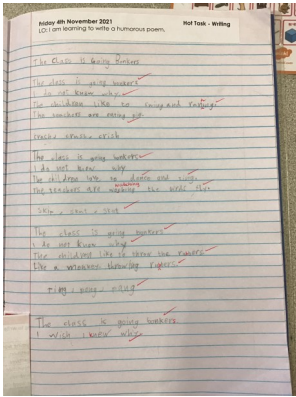 Friday 4th November 2021
Hot Task - Writing
LO: I am learning to write a humorous poem.
The Class Is Going Bonkers
The class is going bonkers
I do not know why
The children like to and
The teachers are eating pie
crash, crush, crish
The class is going bonkers
I do not know why
The children love to dance and sing
The teachers are watching the birds
The class is going bonkers
I do not know why
The children like to throw the rulers
Like a throwing
The class is going bonkers
I wish I knew why